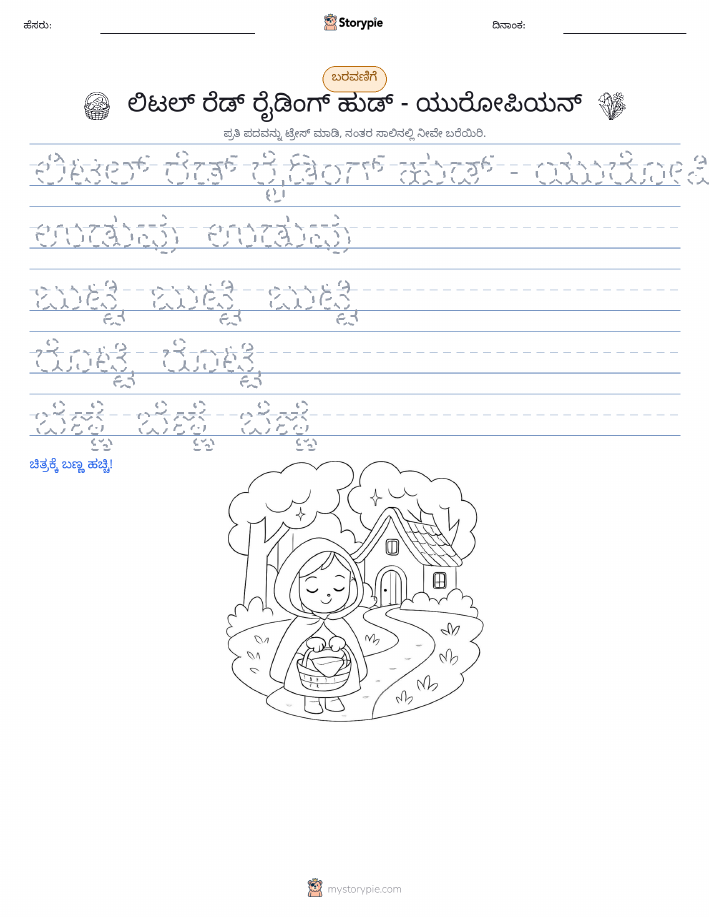 ಹೆಸರು:
Storypie
ದಿನಾಂಕ:
ಬರವಣಿಗೆ
ಲಿಟಲ್ ರೆಡ್ ರೈಡಿಂಗ್ ಹುಡ್ - ಯುರೋಪಿಯನ್
ಪ್ರತಿ ಪದವನ್ನು ಟ್ರೇಸ್ ಮಾಡಿ, ನಂತರ ಸಾಲಿನಲ್ಲಿ ನೀವೇ ಬರೆಯಿರಿ.
ಲಿಟಲ್ ರೆಡ್ ರೈಡಿಂಗ್ ಹುಡ್ - ಯುರೋಪಿ
ಉಡುಪು ಉಡುಪು
ಬುಟ್ಟಿ ಬುಟ್ಟಿ ಬುಟ್ಟಿ
ರೊಟ್ಟಿ ರೊಟ್ಟಿ
ಬೆಣ್ಣೆ ಬೆಣ್ಣೆ ಬೆಣ್ಣೆ
ಚಿತ್ರಕ್ಕೆ ಬಣ್ಣ ಹಚ್ಚಿ!
mystorypie.com